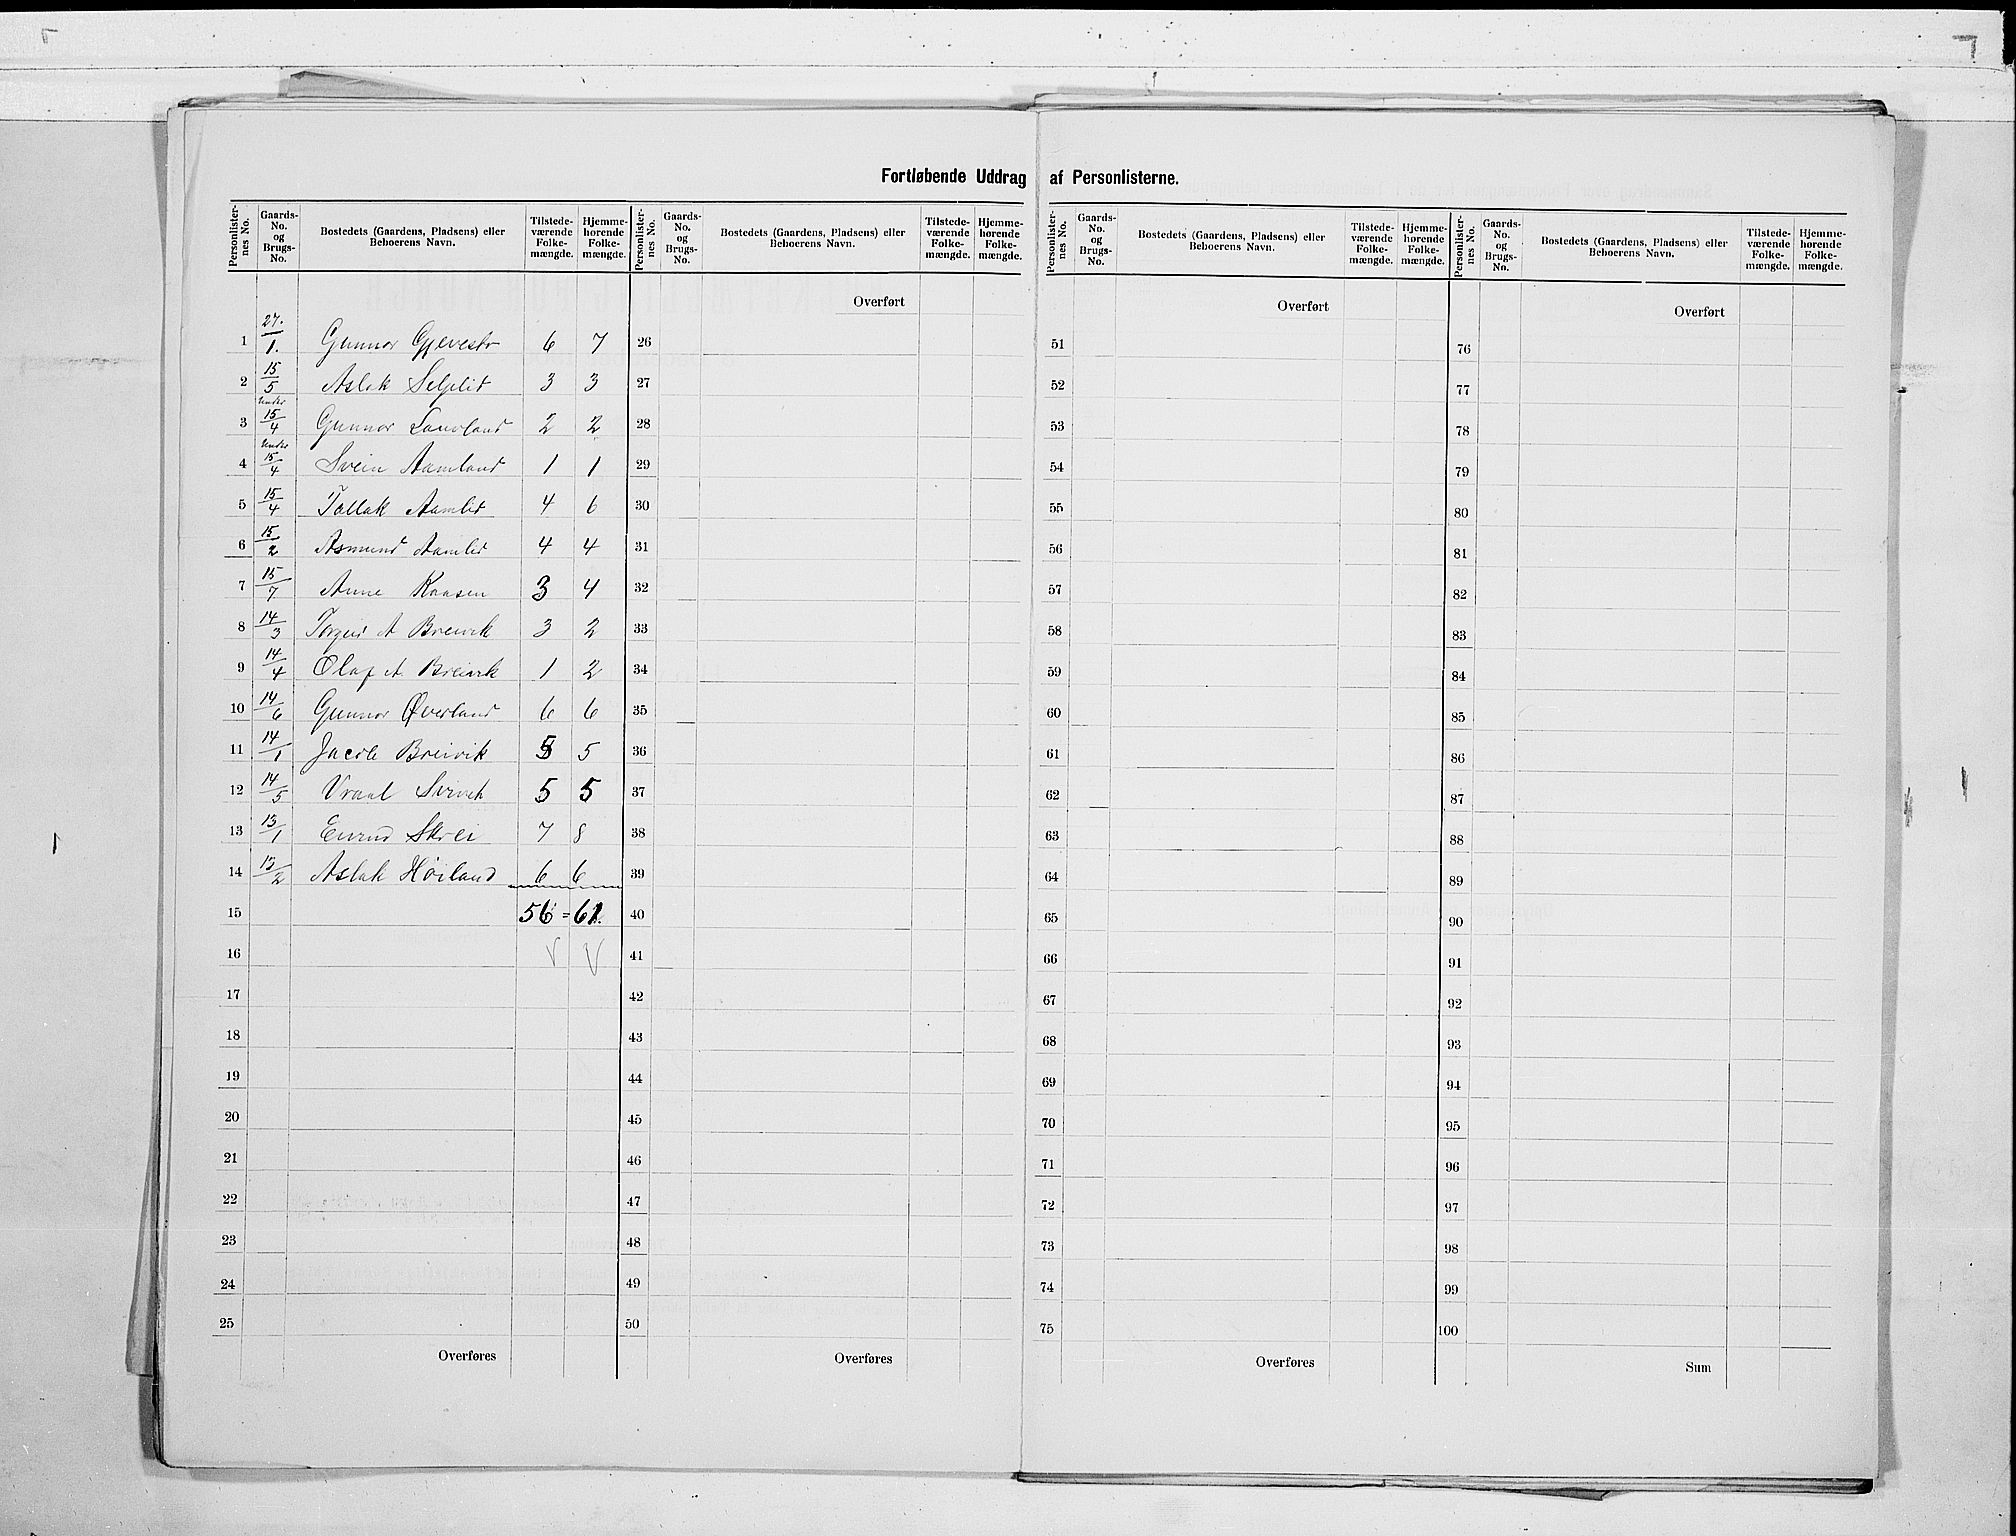 Fortløbende Uddrag af Personlisterne.
Personlisternes No. | Gaards-No. og Brugs-No. | Bostedets (Gaardens, Pladsens) eller Beboerens Navn. | Tilstedeværende Folkemængde. | Hjemmehørende Folkemængde. | Personlisternes No. | Gaards-No. og Brugs-No. | Bostedets (Gaardens, Pladsens) eller Beboerens Navn. | Tilstedeværende Folkemængde. | Hjemmehørende Folkemængde. | Personlisternes No. | Gaards-No. og Brugs-No. | Bostedets (Gaardens, Pladsens) eller Beboerens Navn. | Tilstedeværende Folkemængde. | Hjemmehørende Folkemængde. | Personlisternes No. | Gaards-No. og Brugs-No. | Bostedets (Gaardens, Pladsens) eller Beboerens Navn. | Tilstedeværende Folkemængde. | Hjemmehørende Folkemængde.
Overført Overført Overført
1 27./1. Gunnar Gjevestv 6 7 26 51 76
2 15/5 Aslak Seljelid 3 3 27 52 77
3 Under 15/4 Gunnar Lauvland 2 2 28 53 78
4 Under 15/4 Svein Aamland 1 1 29 54 79
5 15/4 Tallak Aamlid 4 6 30 55 80
6 15/2 Asmund Aamlid 4 4 31 56 81
7 15/7 Anne Kaasen 3 4 32 57 82
8 14/3 Torgus A Breivik 3 2 33 58 83
9 14/4 Olaf A. Breivik 1 2 34 59 84
10 14/6 Gunnar Øverland 6 6 35 60 85
11 14/1 Jacob Breivik 5 5 36 61 86
12 14/5 Vraal 5 5 37 62 87
13 13/1 Eivind Skrei 7 8 38 63 88
14 13/2 Aslak Høiland 6 6 39 64 89
15 56 = 61. 40 65 90
16 V V 41 66 91
17 42 67 92
18 43 68 93
19 44 69 94
20 45 70 95
21 46 71 96
22 47 72 97
23 48 73 98
24 49 74 99
25 50 75 100
Overføres Overføres Overføres Sum